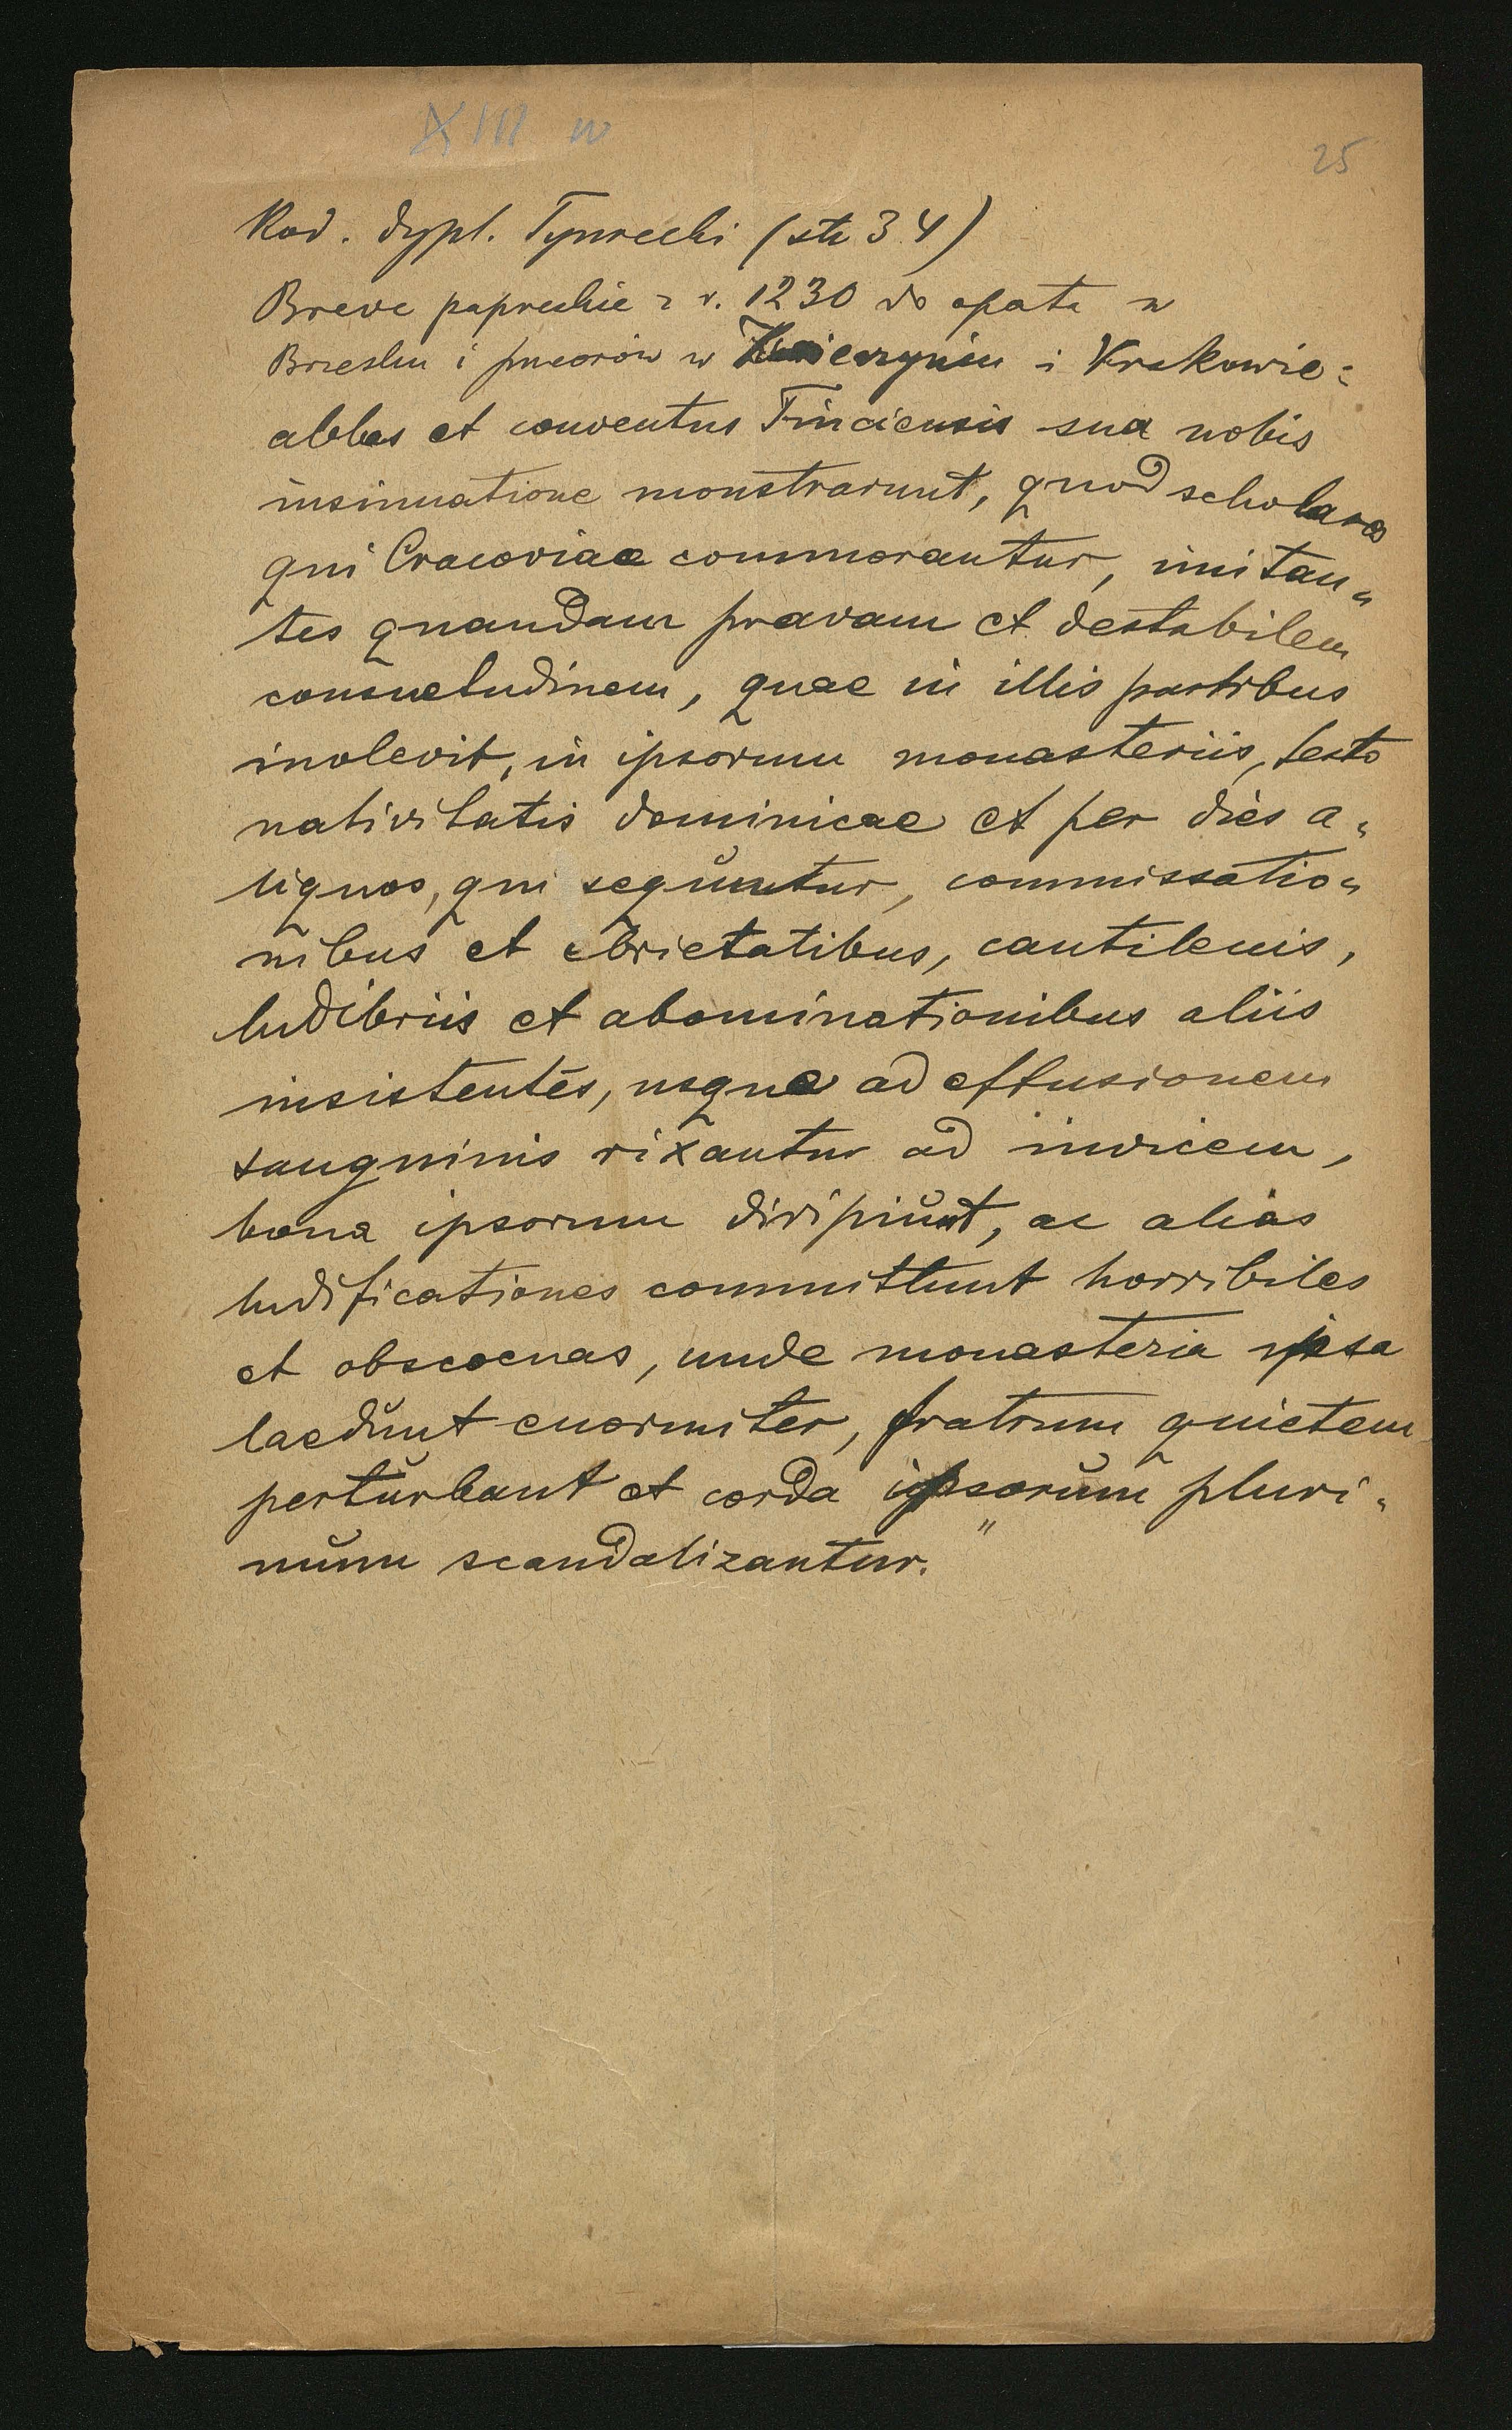 XIII w
25
Kod. dypl. Tyniecki (str 34)
Breve papieskie z r. 1230 do opata w
Brzesku i przeorów w Zwierzyńcu i Krakowie:
abbas et conventus Tinciensis sua nobis
insinuatione monstrarunt, quod scholares
qui Cracoviae commorantur, imitan„
tes quandam pravam et destabilem
consuetudinem, quae in illis partibus
inolevit, in ipsorum monasteriis, festo
nativitatis dominicae et per dies a„
liquos, qui sequuntur, commissatio„
nibus et ebrietatibus, cantilenis,
ludibriis et abominationibus aliis
insistentes, usque ad effusionem
sanguinis rixantur ad invicem,
bona ipsorum diripiunt, ac alias
ludificationes committunt horribiles
et obscoenas, unde monasteria ipsa
laedunt enormiter, fratrum quietem
perturbant et corda ipsorum pluri„
mum scandalizantur."